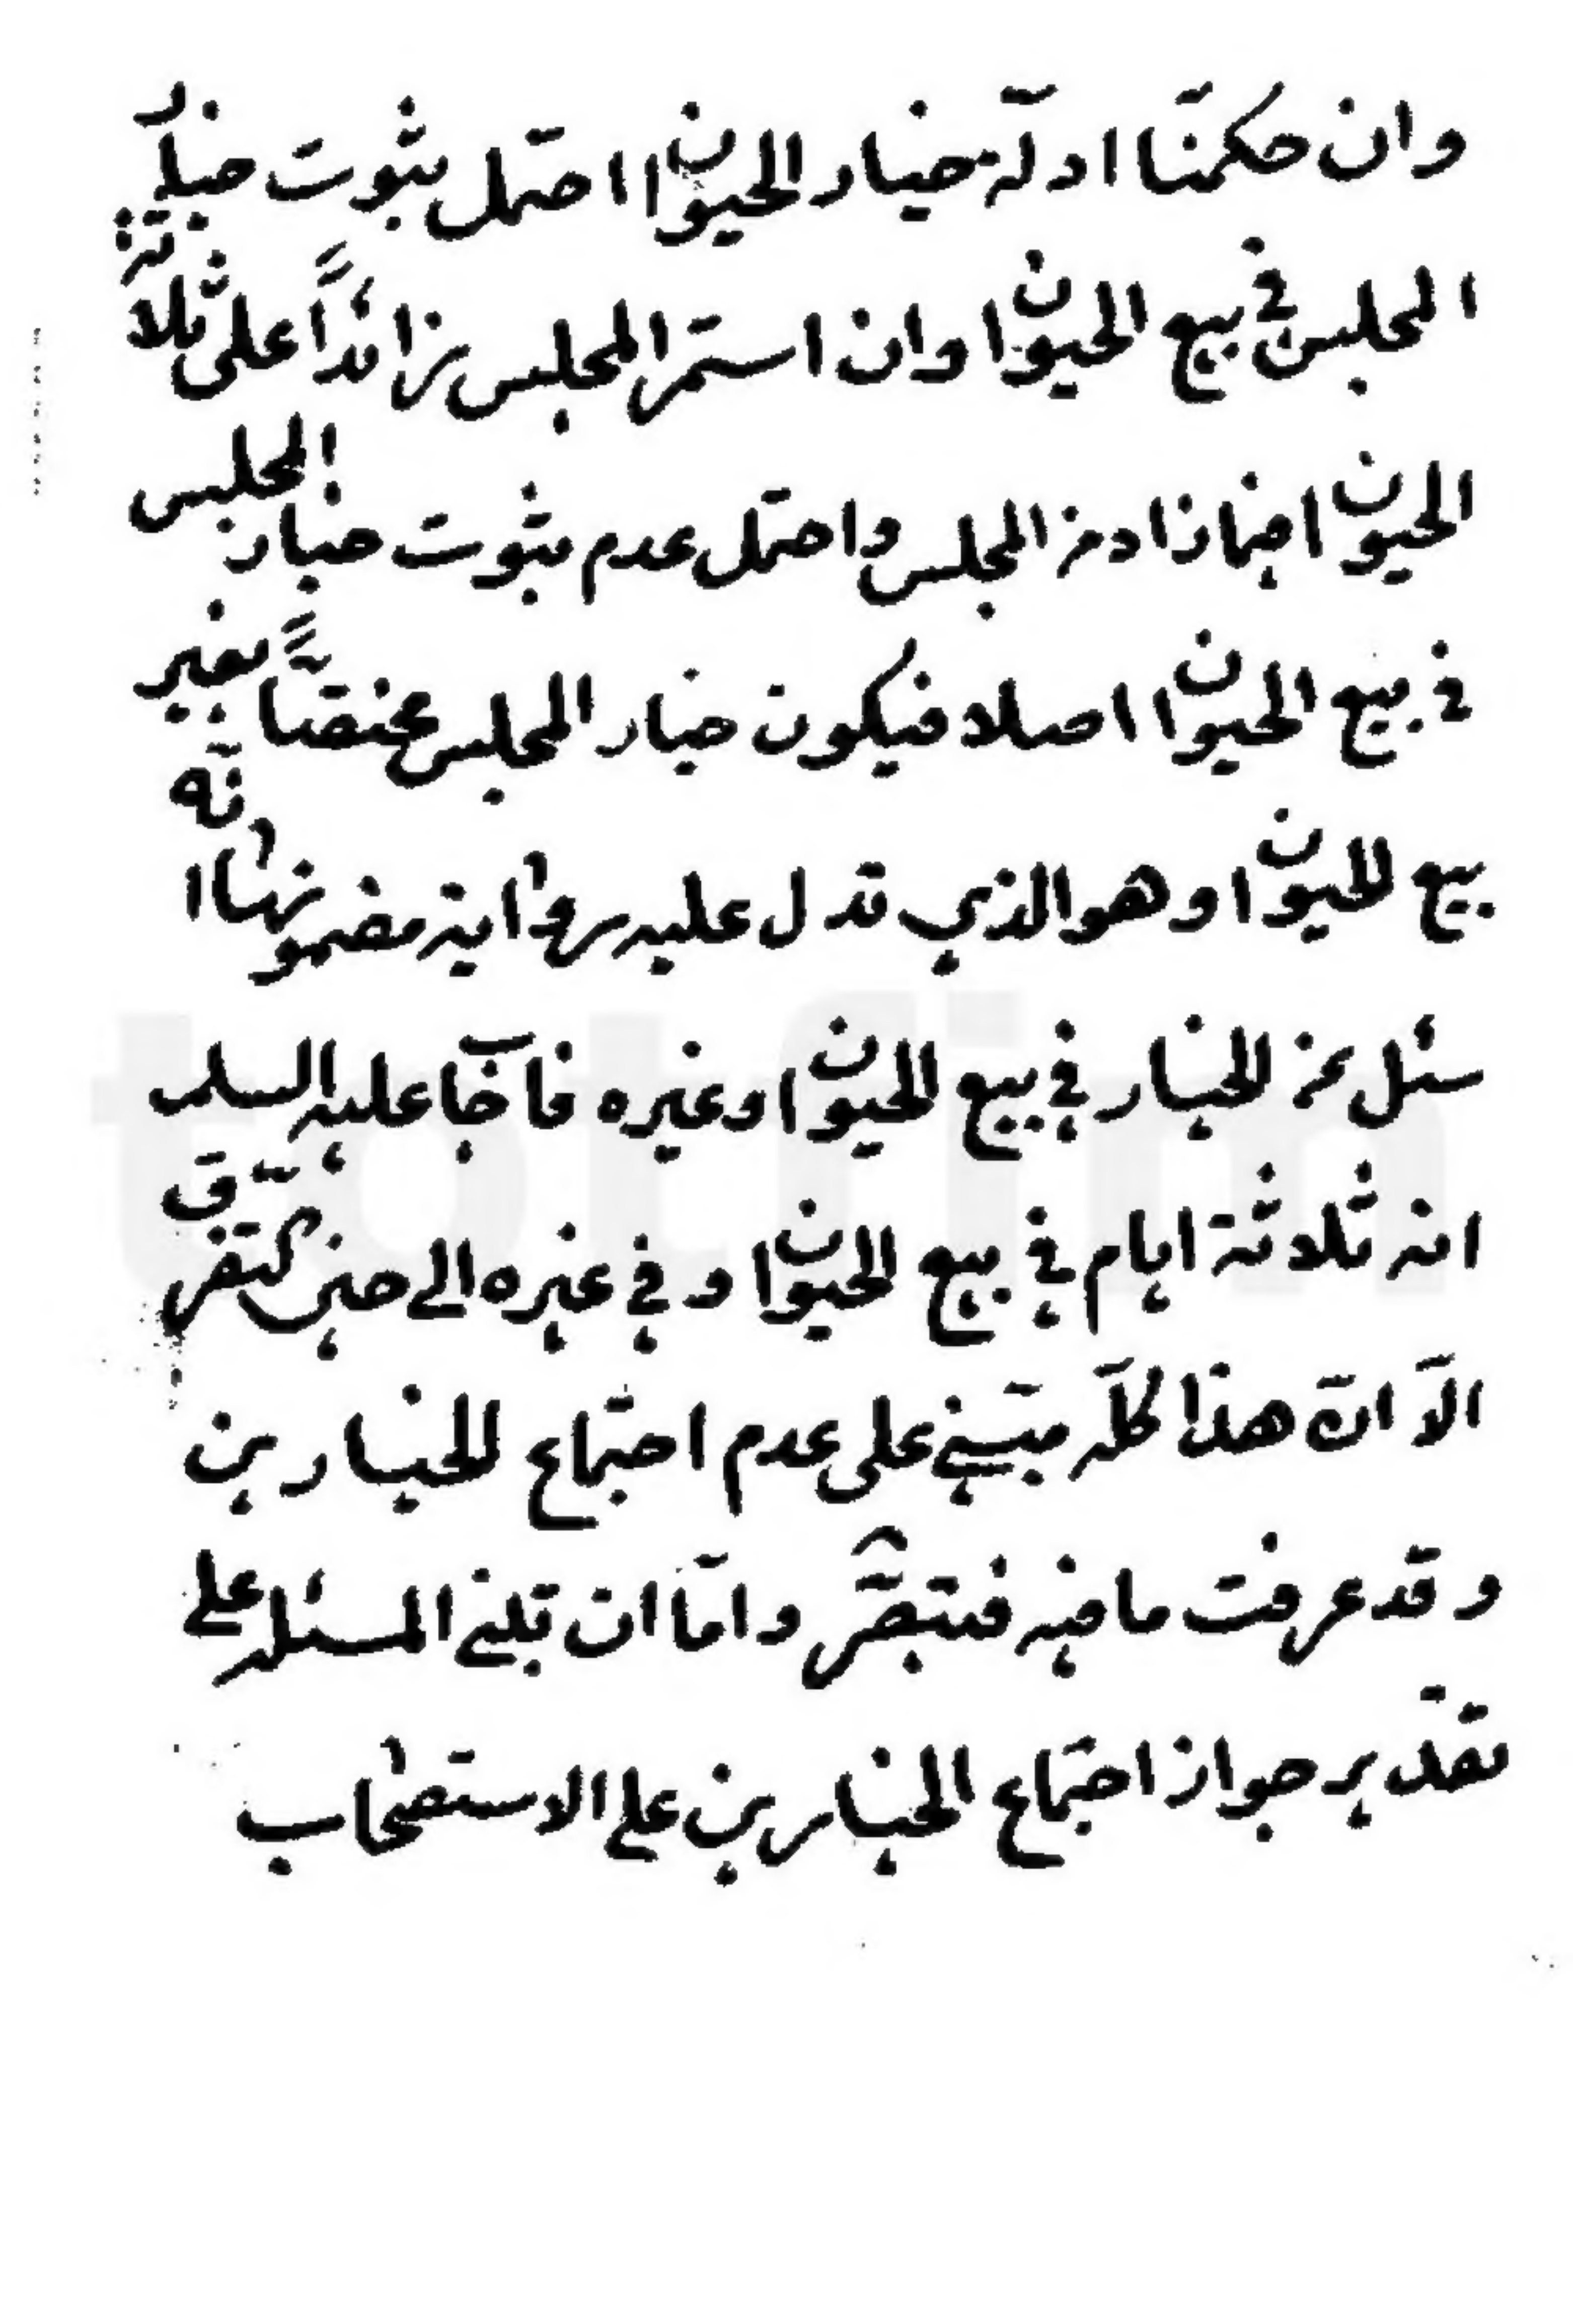 وان حكمنا ادلة خيار الحيوان احتمل ثبوت خيار
المجلس في بيع الحيوان وان استمر المجلس زائداً على ثلاثة
الحيوان اذا زاد من المجلس واحتمل عدم ثبوت خيار المجلس
في بيع الحيوان اصلا فيكون خيار المجلس مختصاً بغير
بيع الحيوان وهو الذي قد دل عليه رواية مضمونها انّه
سئل عن الخيار في بيع الحيوان وغيره فاجاب عليه السلم
انه ثلاثة ايام في بيع الحيوان وفي غيره الى حين التفرّق
الّا انّ هذا كلّه مبتني على عدم اجتماع الخيارين
وقد عرفت ما فيه فتبصّر وامّا ان تبني المسئلة على
تقدير جواز اجتماع الخيارين على الاستصحاب
totfim